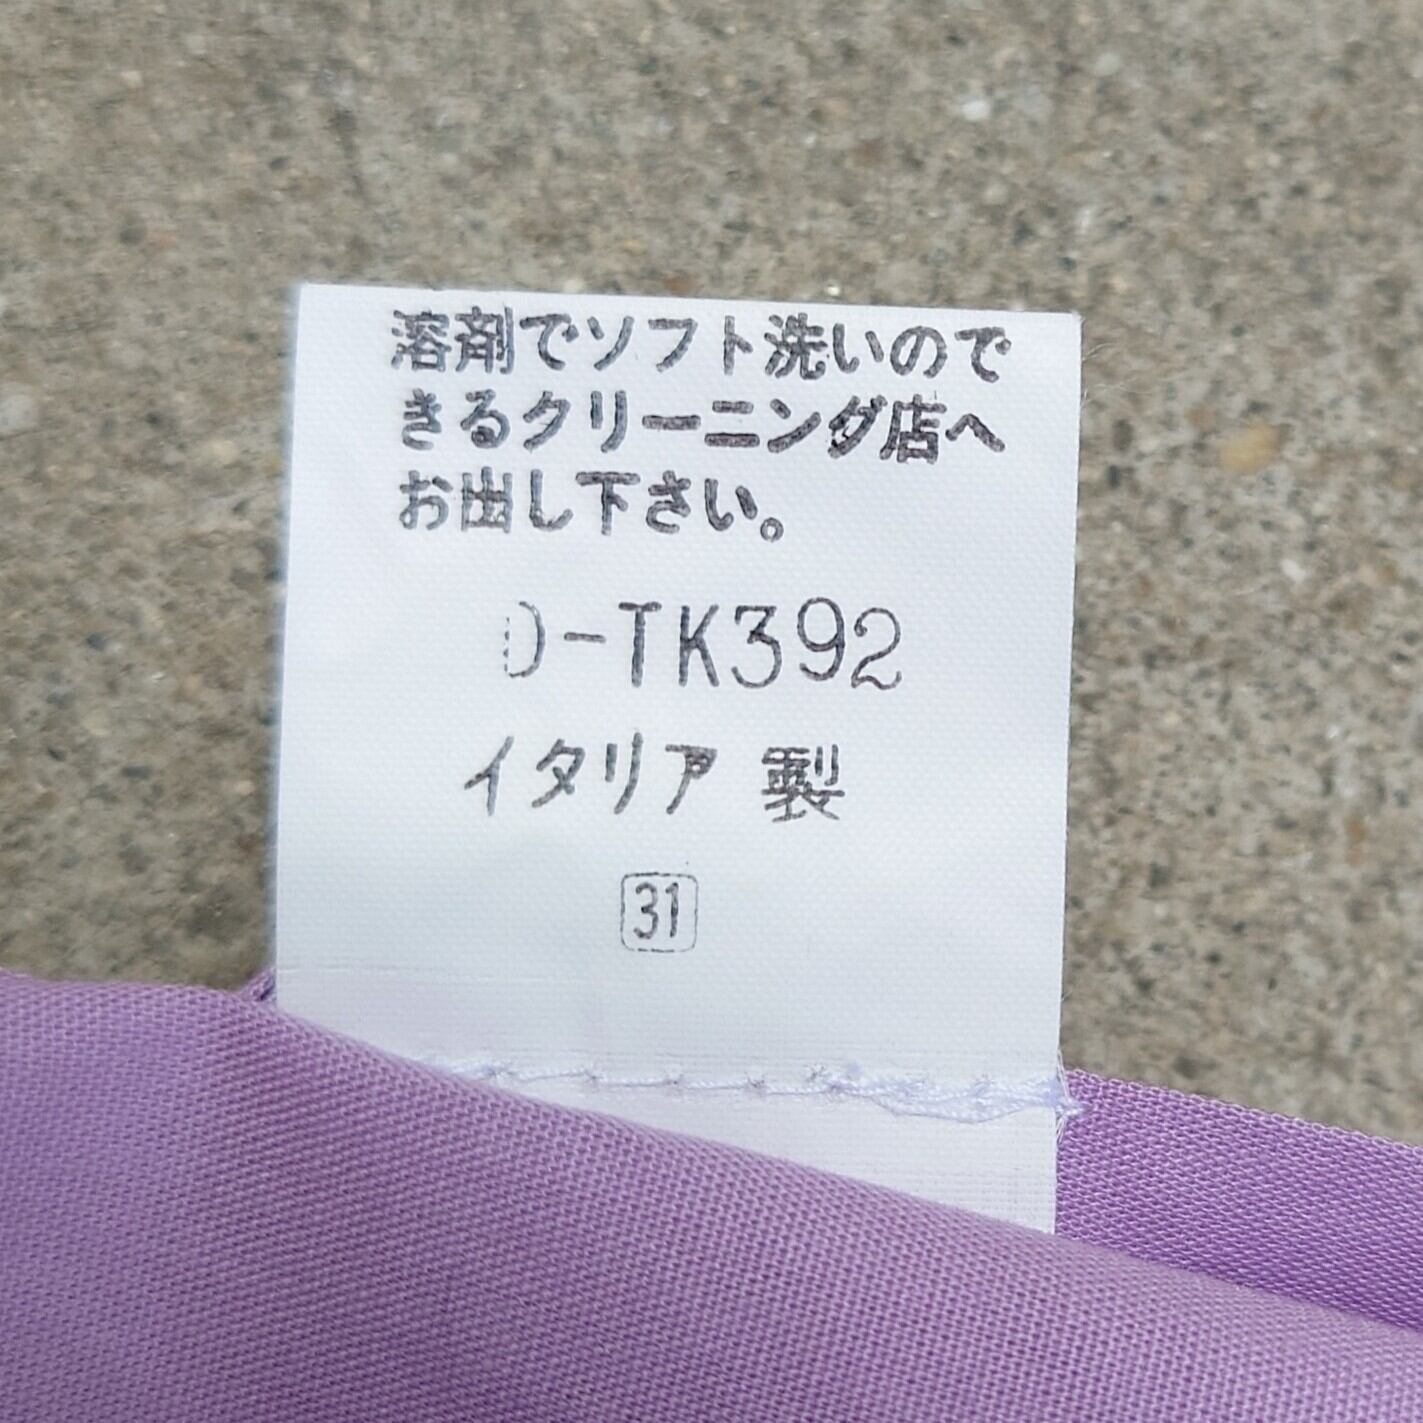 溶剤でソフト洗いので
きるクリーニング店へ
お出し下さい。
D-TK392
イタリア 製
31